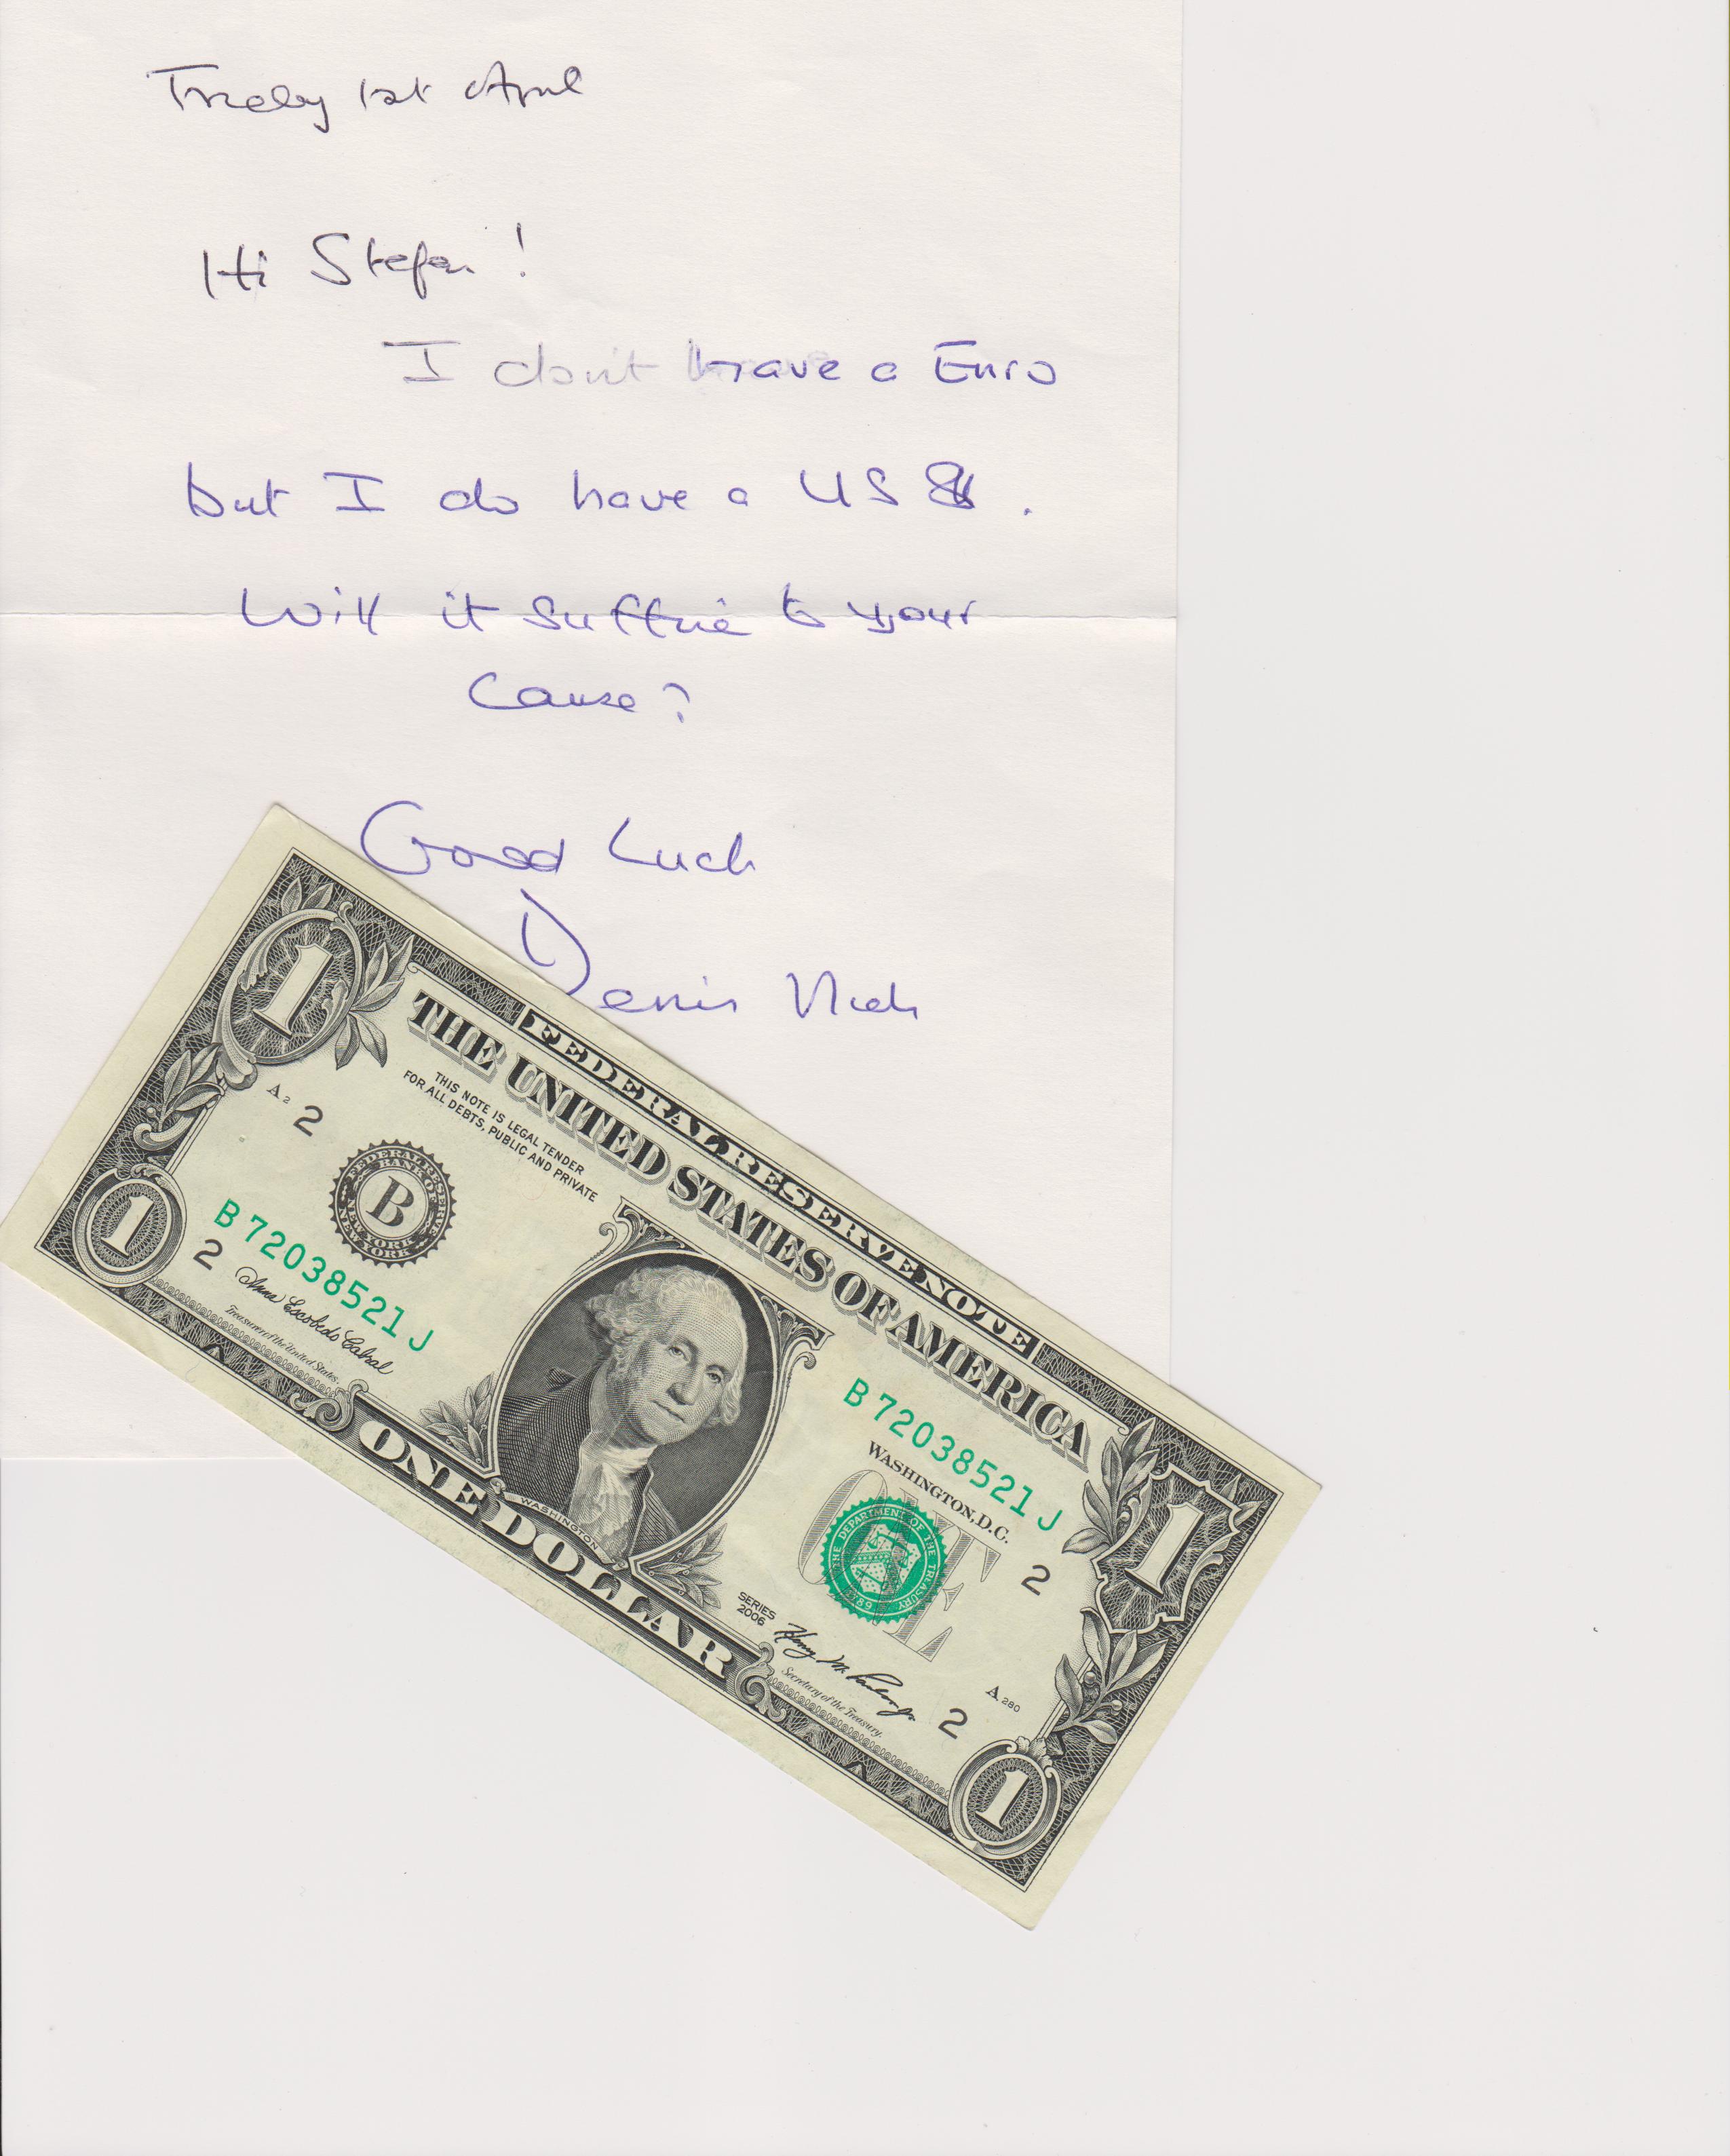 1st April
Hi Stefan!
I don't have a Euro
but I do have a US $.
Will it suffice to your
Cause?
Good Luck
Denis
FEDERAL RESERVE NOTE
THE UNITED STATES OF AMERICA
THIS NOTE IS LEGAL TENDER
FOR ALL DEBTS, PUBLIC AND PRIVATE
1
1
A 2
2
FEDERAL RESERVE BANK OF NEW YORK
NEW YORK
B
B 72038521 J
2
Anna Escobedo Cabral
Treasurer of the United States.
WASHINGTON
B 72038521 J
WASHINGTON, D.C.
ONE
THE DEPARTMENT OF THE TREASURY
1789
2
SERIES
2006
Henry M. Paulson Jr.
Secretary of the Treasury.
2
A 280
1
1
ONE DOLLAR